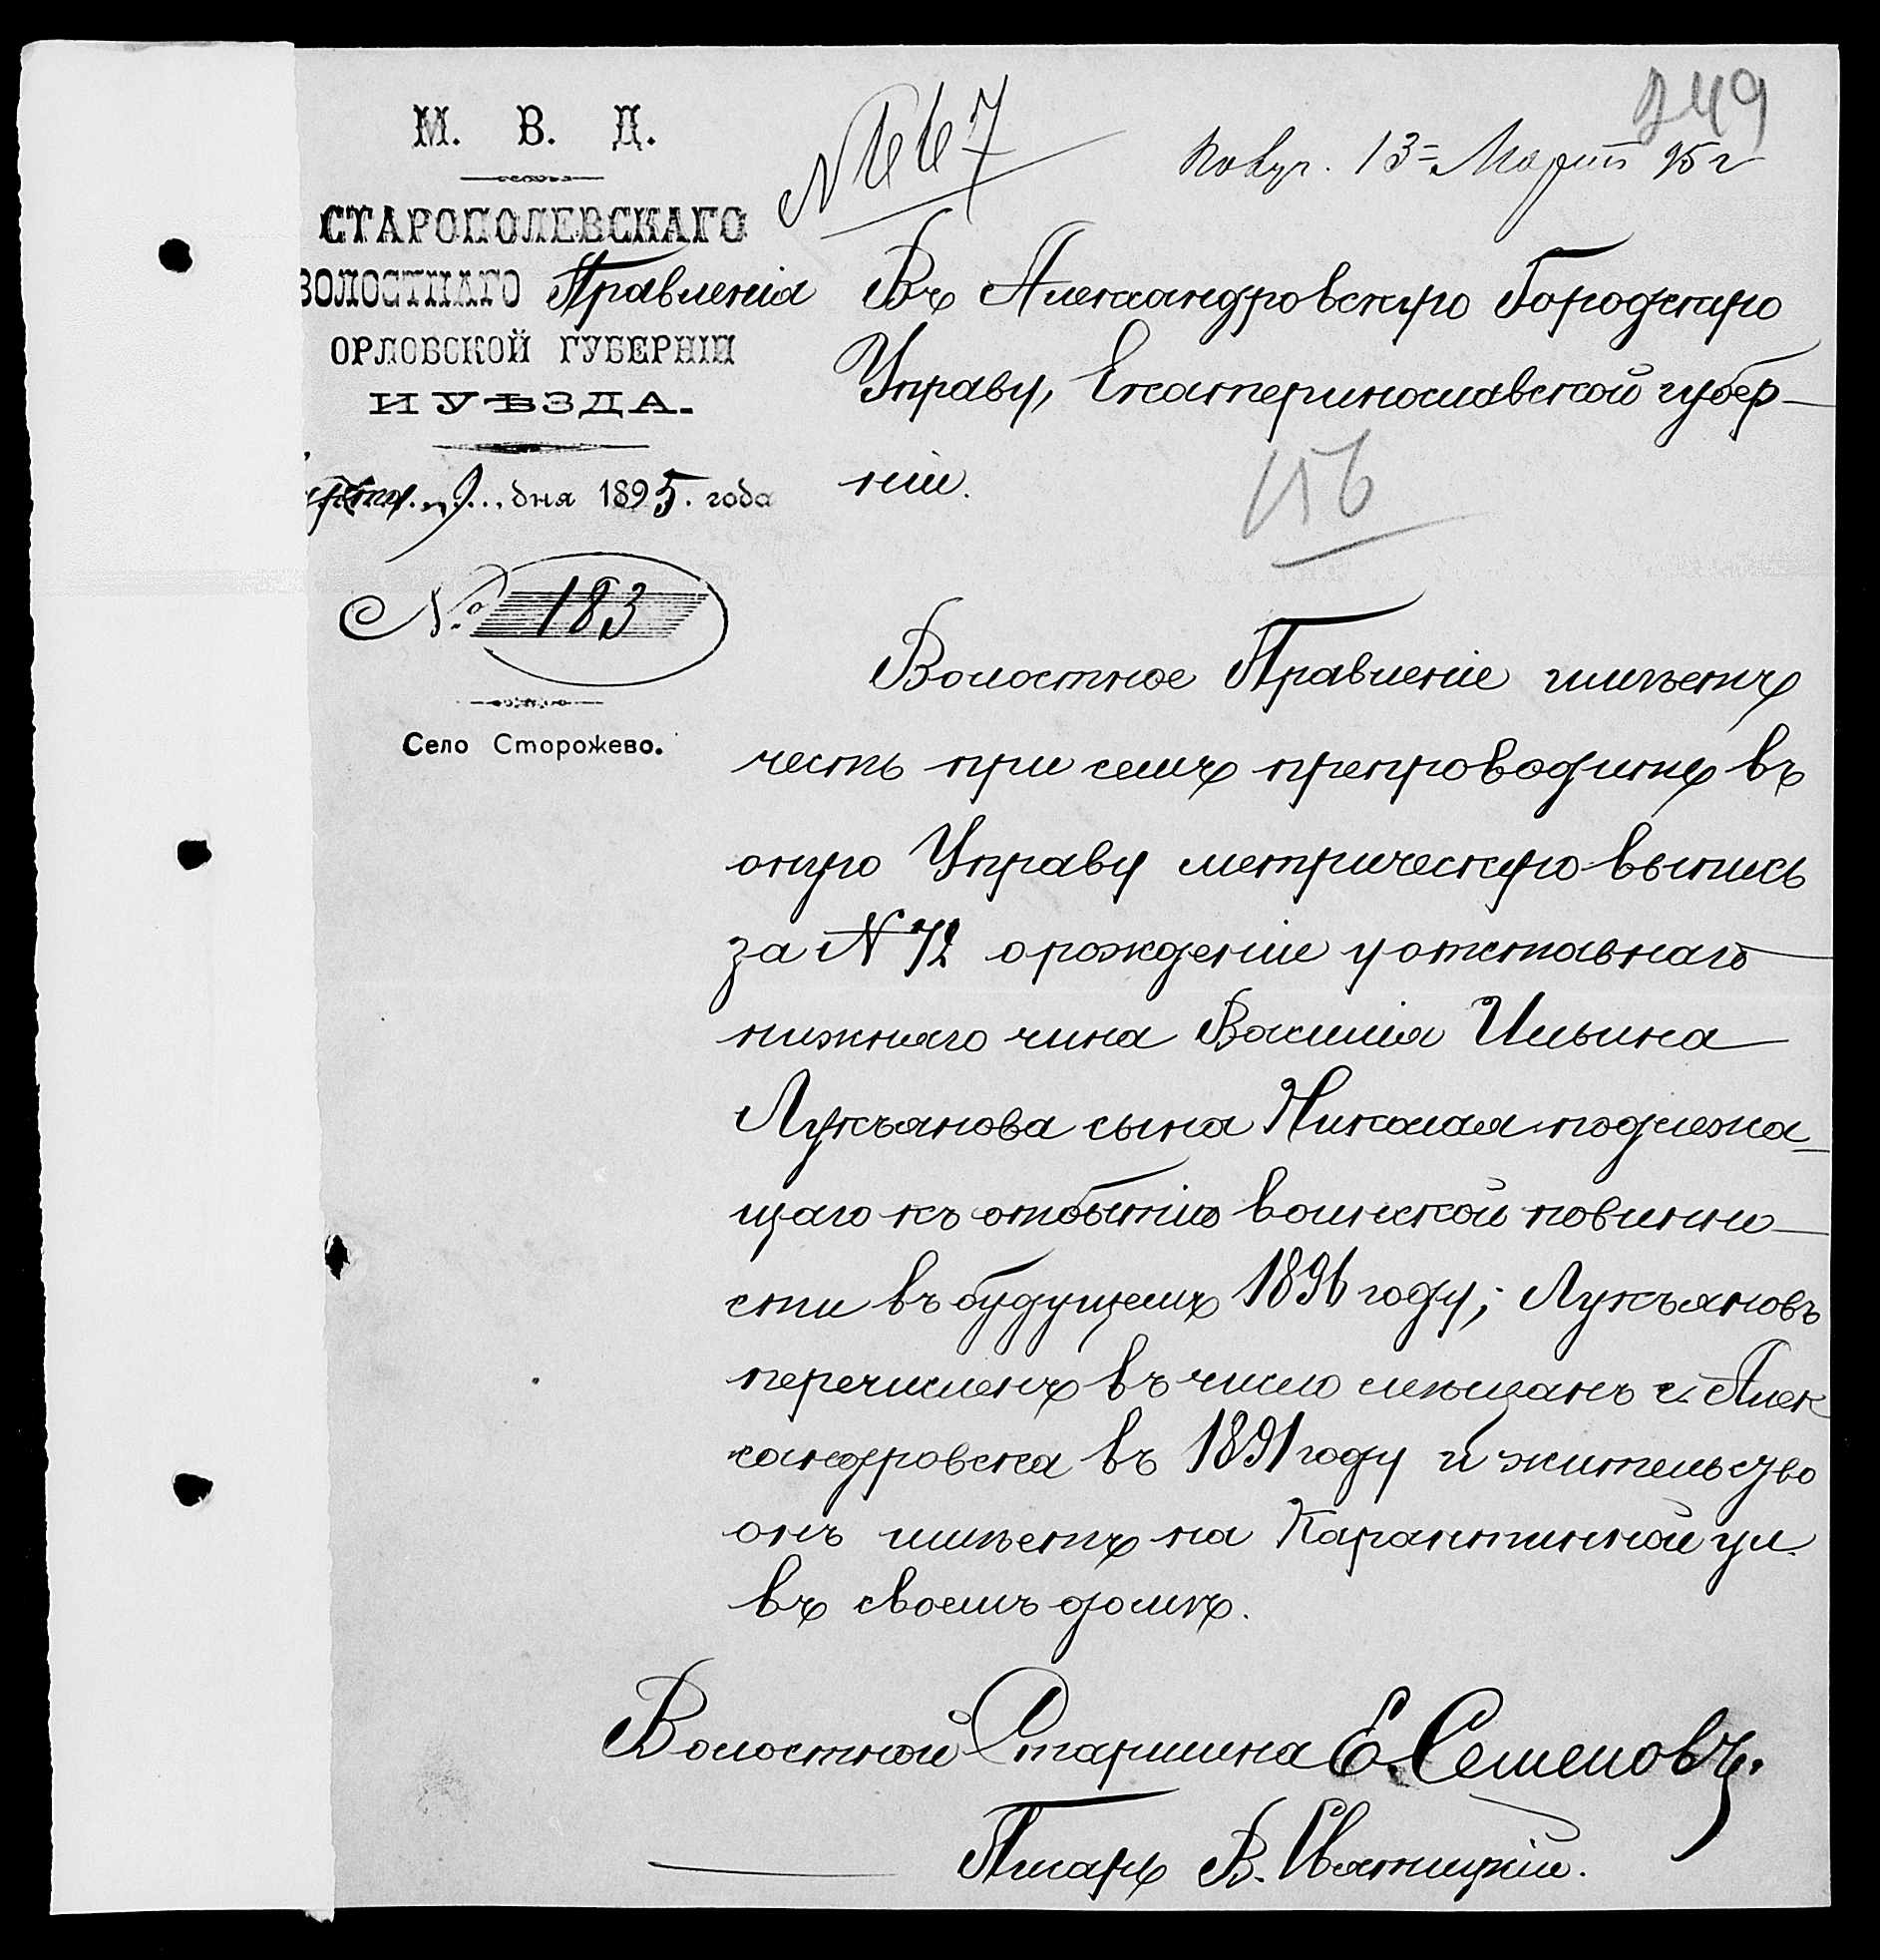 249
М. В. Д.
СТАРОПОЛЕВСКАГО
ВОЛОСТНАГО Правленія
ОРЛОВСКОЙ ГУБЕРНІИ
И УѢЗДА.
9 дня 1895 года
№ 183
Село Сторожево.
№ 667
Получ. 13 Марта 95 г
Въ Александровскую Городскую
Управу, Екатеринославской губер-
ніи.
156
Волостное Правленіе имѣетъ
честь при семъ препроводить въ
оную Управу метрическую выпись
за № 72 о рожденіи у отставнаго
нижняго чина Василія Ильина
Лукъянова сына Николая подлежа-
щаго къ отбытію воинской повинно-
сти въ будущемъ 1896 году; Лукъяновъ
перечисленъ въ число мѣщанъ г. Алек
сандровска въ 1891 году и жительство
онъ имѣетъ на Карантинной ул.
въ своемъ домѣ.
Волостной Старшина Е. Семеновъ.
Писарь В. Святицкій.